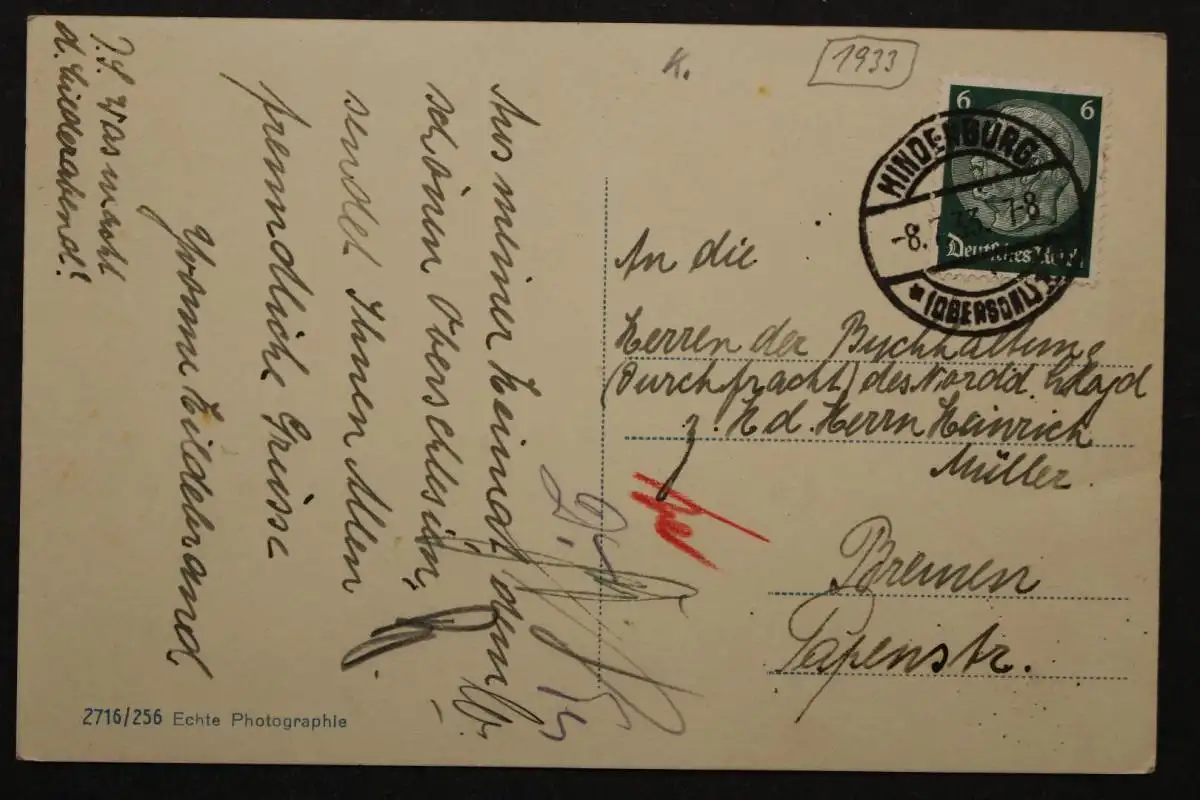 K.
1933
6 6
Deutsches Reich
HINDENBURG
-8. 33. 7-8
* (OBERSCHL)
An die
Herren der Buchhaltung
(Durchfracht) des Nordd. Lloyd
z. Hd. Herrn Heinrich
Müller.
Bremen
Papenstr.
Aus meiner Heimat dem
schönen Oberschlesien,
sendet Ihnen Allen
freundliche Grüsse
Hildebrand
Was macht
d. Liederabend?
2716/256 Echte Photographie